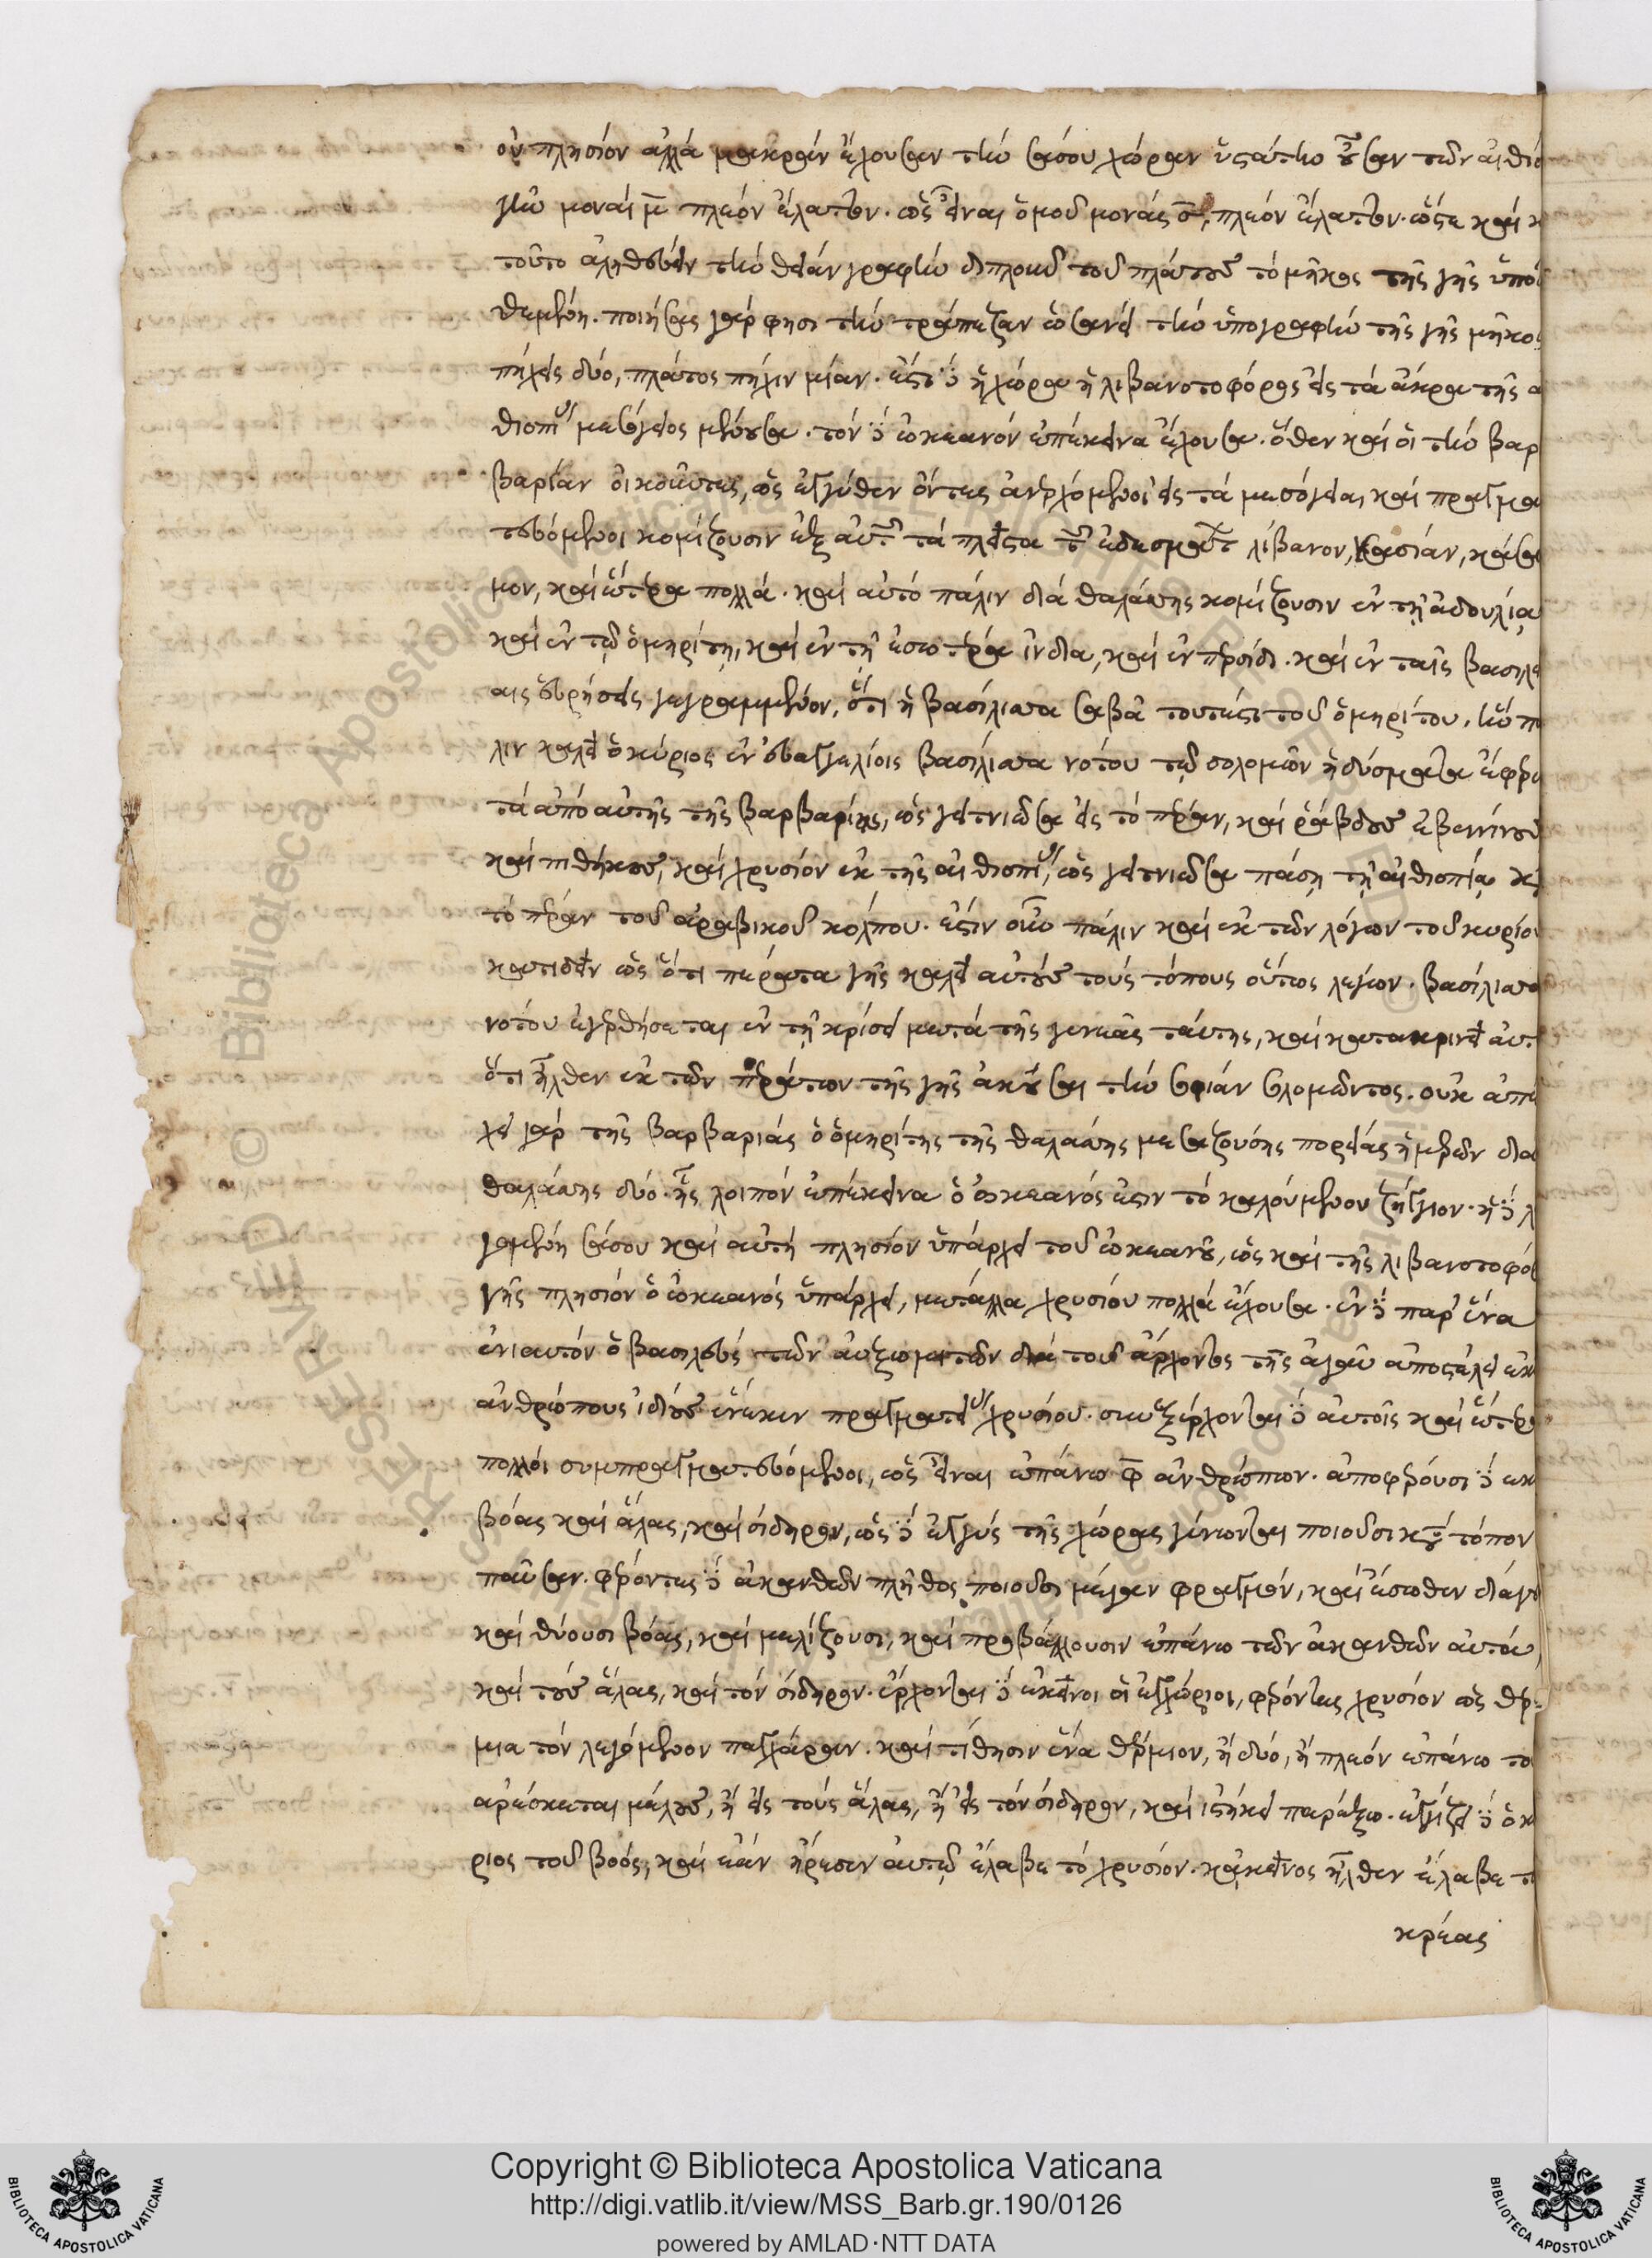 οὐ πλησίον ἀλλὰ μακρὰν ἔχουσαν τὴν σάσου χώραν ὑστάτην οὖσαν τῶν αἰθιό
γῆν μοναὶ μ̅ πλέον ἔλαττον. ὡς εἶναι ὁμοῦ μονὰς σ̅, πλέον ἔλαττον. ὥστε καὶ κ
τοῦτο ἀληθεύειν τὴν θείαν γραφὴν διπλοῦν τοῦ πλάτους τὸ μῆκος τῆς γῆς ὑπο
θεμένη. ποιήσεις γάρ φησι τὴν τράπεζαν ὡσανεὶ τὴν ὑπογραφὴν τῆς γῆς μῆκος
πήχεις δύο, πλάτος πήχην μίαν. ἔστι δὲ ἡ χώρα ἡ λιβανοτοφόρος εἰς τὰ ἄκρα τῆς α
θιοπίας μεσόγειος μὲν οὖσα. τὸν δὲ ὠκεανὸν ἐπέκεινα ἔχουσα. ὅθεν καὶ οἱ τὴν βαρ
βαρίαν οἰκοῦντες, ὡς ἐγγύθεν ὄντες ἀνερχόμενοι εἰς τὰ μεσόγεια, καὶ πραγμα
τευόμενοι κομίζουσιν ἐξ αὐτῶν τὰ πλεῖστα τῶν ἡδυσμάτων λίβανον, κασίαν, κάλα
μον, καὶ ἕτερα πολλά. καὶ αὐτὸ πάλιν διὰ θαλάττης κομίζουσιν ἐν τῇ ἀδουλίᾳ
καὶ ἐν τῷ ὁμηρίτῃ, καὶ ἐν τῇ ἐσωτέρα ἰνδία, καὶ ἐν περσίδι. καὶ ἐν ταῖς βασιλεί
αις εὑρήσεις γεγραμμένον, ὅτι ἡ βασίλισσα σαβὰ τουτέστι τοῦ ὁμηρίτου. ἣν πά
λιν καλεῖ ὁ κύριος ἐν εὐαγγελίοις βασίλισσα νότου τῷ σολομῶν ἡδύσματα ἔφερε
τὰ ἀπὸ αὐτῆς τῆς βαρβαρίας, ὡς γειτνιῶσα εἰς τὸ πέραν, καὶ ῥάβδους ἐβεννίνους
καὶ πιθήκους, καὶ χρυσίον ἐκ τῆς αἰθιοπίας, ὡς γειτνιῶσα πάσῃ τῇ αἰθιοπίᾳ κ
τὸ πέραν τοῦ ἀραβικοῦ κόλπου. ἔστιν οὖν πάλιν καὶ ἐκ τῶν λόγων τοῦ κυρίου
κατιδεῖν ὡς ὅτι πέρατα γῆς καλεῖ αὐτοὺς τοὺς τόπους οὕτως λέγων. βασίλισσα
νότου ἐγερθήσεται ἐν τῇ κρίσει μετὰ τῆς γενεᾶς ταύτης, καὶ κατακρινεῖ αὐτ
ὅτι ἦλθεν ἐκ τῶν περάτων τῆς γῆς ἀκοῦσαι τὴν σοφίαν σολομῶντος. οὐκ ἀπέ
χει γὰρ τῆς βαρβαριὰς ὁ ὁμηρίτης τῆς θαλάττης μεσαζούσης πορείας ἡμερῶν δια
θαλάττης δύο. ἧς λοιπὸν ἐπέκεινα ὁ ὠκεανός ἐστιν τὸ καλούμενον ζήγγιον. ἡ δὲ λ
γομένη σάσου καὶ αὐτὴ πλησίον ὑπάρχει τοῦ ὠκεανοῦ, ὡς καὶ τῆς λιβανοτοφό
γῆς πλησίον ὁ ὠκεανὸς ὑπάρχει, μέταλλα χρυσίου πολλὰ ἔχουσα. ἐν δὲ παρ' ἕνα
ἐνιαυτὸν ὁ βασιλεὺς τῶν αὐξωμιτῶν διὰ τοῦ ἄρχοντος τῆς ἀγαῦ ἀποστέλει ἐκ
ἀνθρώπους ἰδίους ἕνεκεν πραγματείας χρυσίου. συνεξέρχονται δὲ αὐτοῖς καὶ ἕτερο
πολλοὶ συμπραγματευόμενοι, ὡς εἶναι ἐπάνω φ̅ ἀνθρώπων. ἀποφέρουσι δὲ ἐκ
βόας καὶ ἅλας, καὶ σίδηρον, ὡς δὲ ἐγγὺς τῆς χώρας γένωνται ποιοῦσι κατὰ τόπον
παῦσαν. φέροντες δὲ ἀκανθῶν πλῆθος ποιοῦσι μέγαν φραγμόν, καὶ ἔσωθεν διάγο
καὶ θύουσι βόας, καὶ μελίζουσι, καὶ προβάλλουσιν ἐπάνω τῶν ἀκανθῶν αὐτά,
καὶ τοὺς ἅλας, καὶ τὸν σίδηρον. ἔρχονται δὲ ἐκεῖνοι οἱ ἐγχώριοι, φέροντες χρυσίον ὡς θέρ-
μια τὸν λεγόμενον παγχάραν. καὶ τίθησιν ἕνα θέρμιον, ἢ δύο, ἢ πλέον ἐπάνω το
ἀρέσκεται μέλους, ἢ εἰς τοὺς ἅλας, ἢ εἰς τὸν σίδηρον, καὶ ἱστήκει παρέξω. ἐγγίζει δὲ ὁ κ
ριος τοῦ βοός, καὶ ἐὰν ἤρεσεν αὐτῷ ἔλαβε τὸ χρυσίον. κἀκεῖνος ἦλθεν ἔλαβε τ
κρέας
Copyright © Biblioteca Apostolica Vaticana
http://digi.vatlib.it/view/MSS_Barb.gr.190/0126
powered by AMLAD·NTT DATA